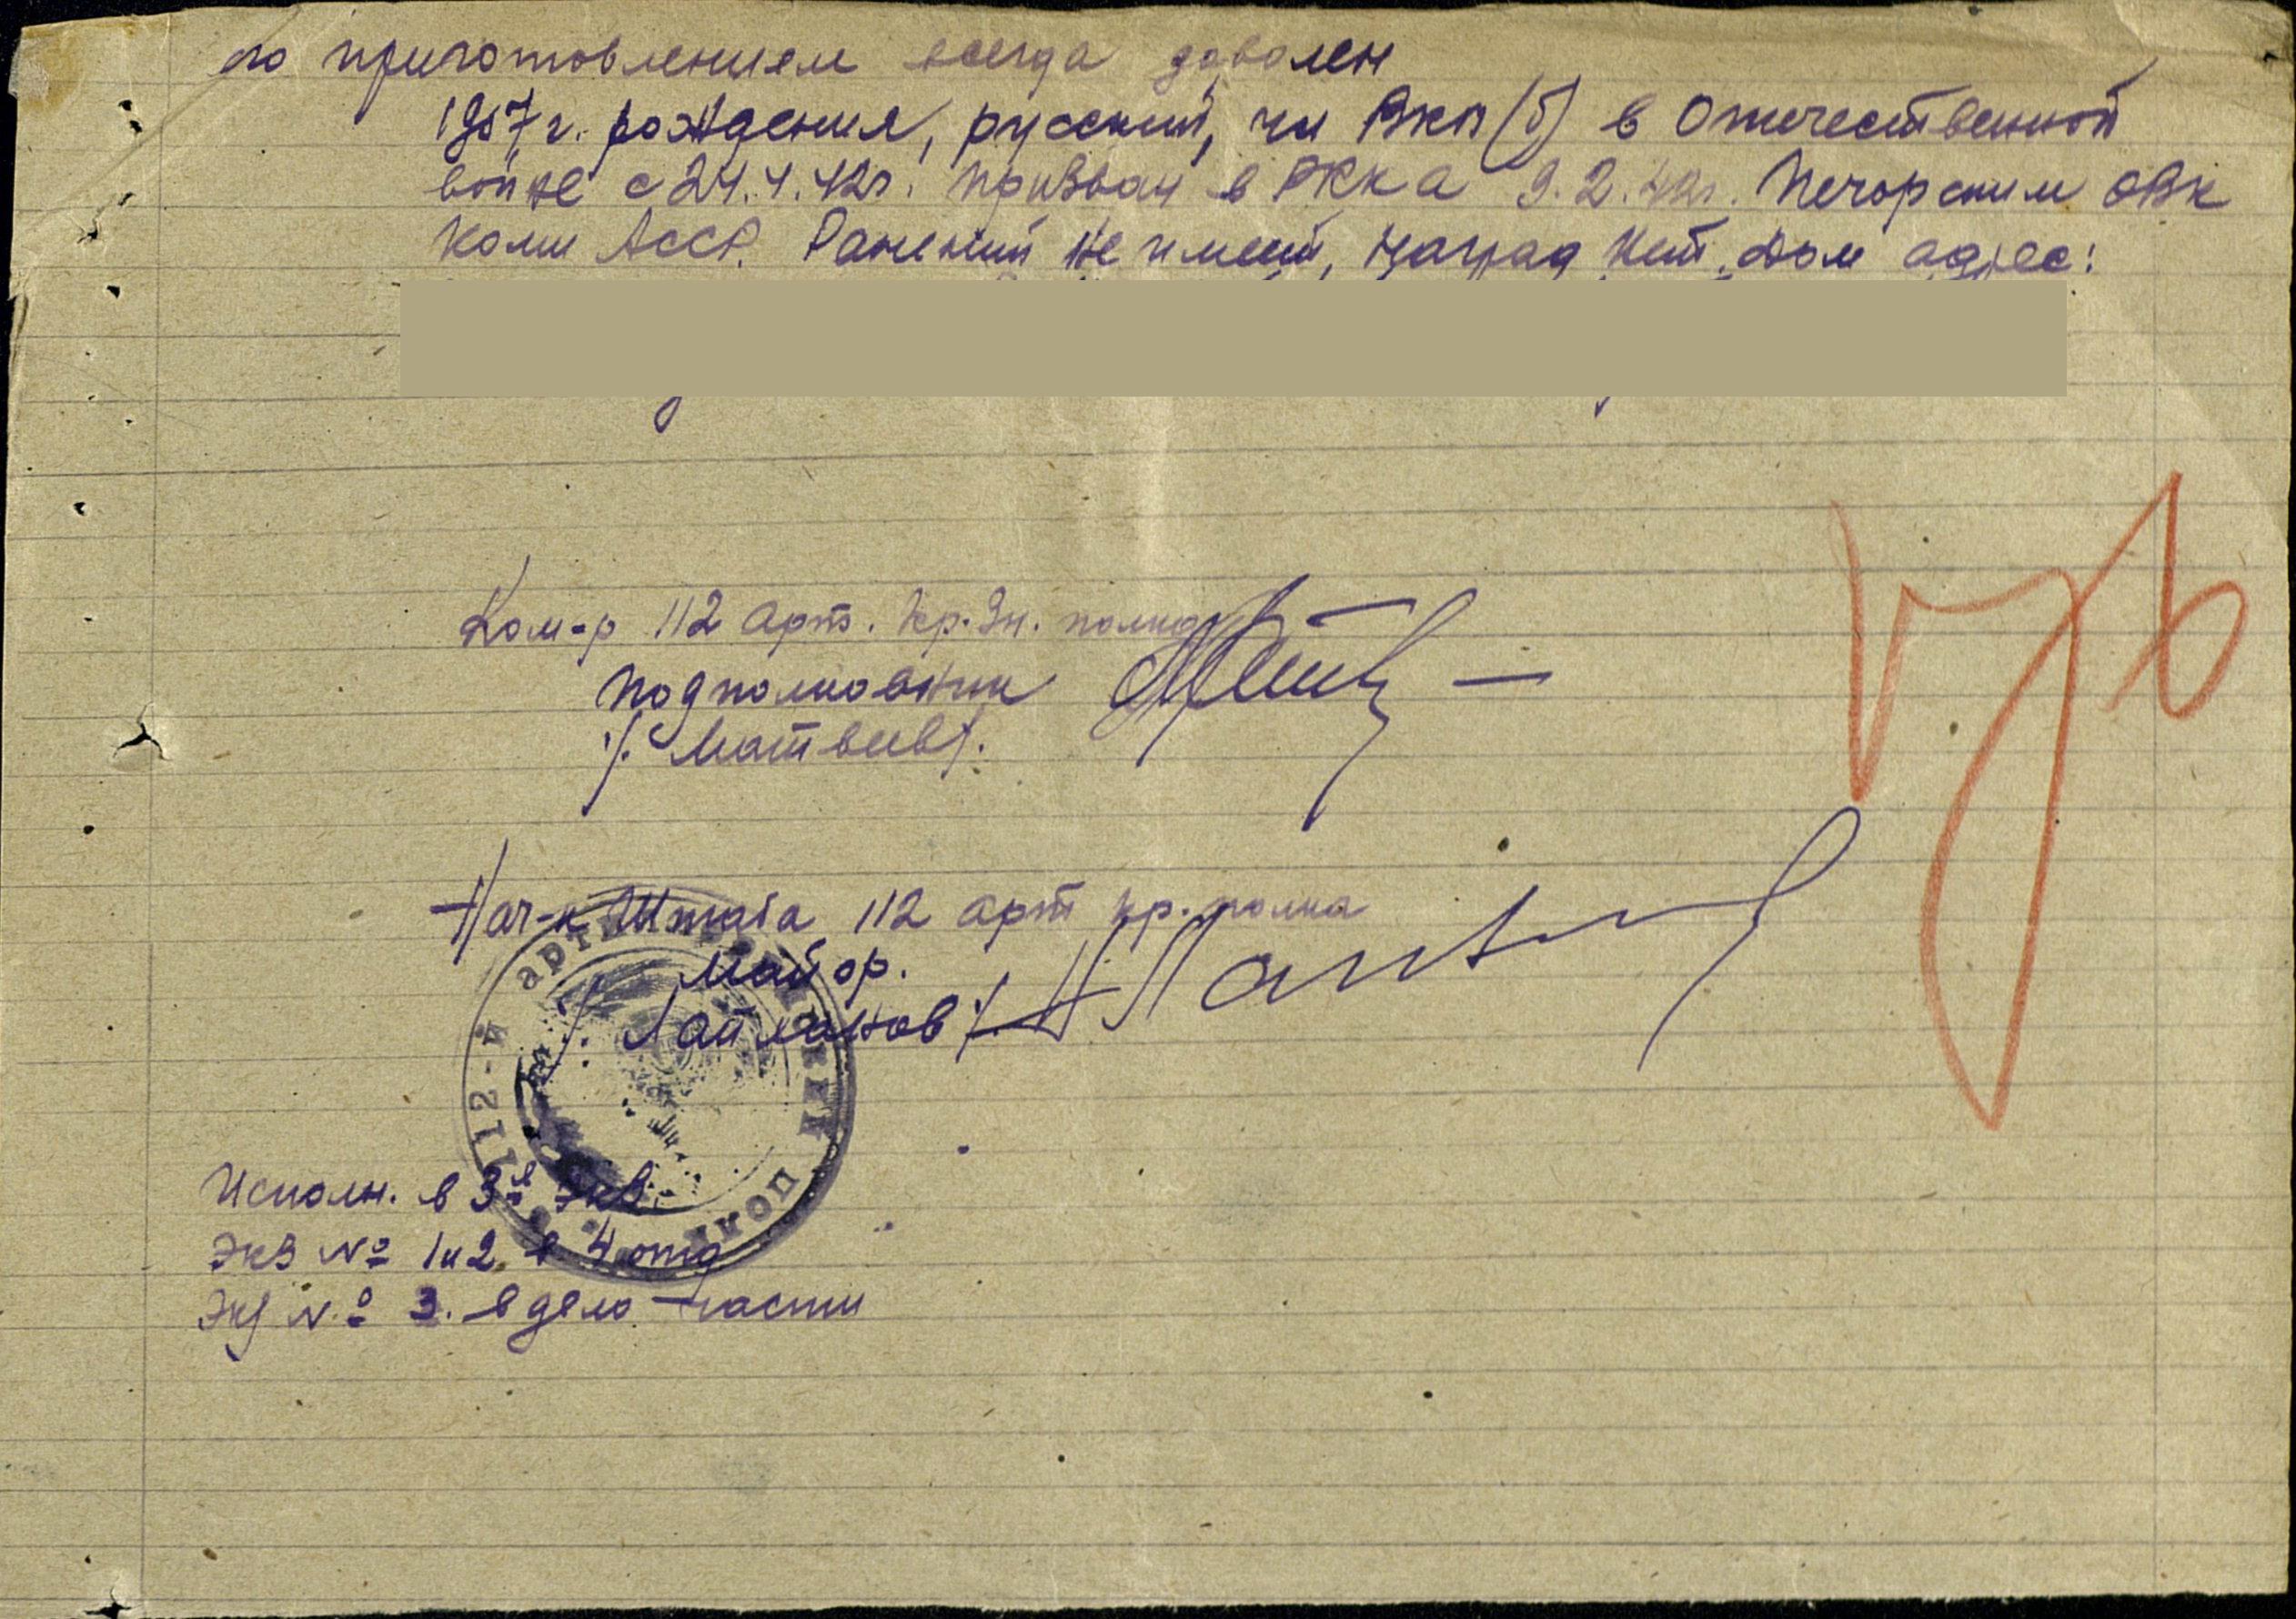 го приготовлением всегда доволен
1907 г. рождения, русский, чл ВКП(б) в Отечественной
войне с 24.4.42г. призван в РККА 9.2.42г. Печорским ОВК
Коми АССР. Ранений не имеет, наград нет. Дом адрес:
Ком-р 112 Арт. Кр. Зн. полка
подполковник
/. Матвеев/.
Нач-к Штаба 112 арт кр. полка
Майор.
/. Лайманов /.
112-й артиллерийский полк
Исполн. в 3-х экз
Экз № 1 и 2 в 4 отд
Экз № 3. в дело части